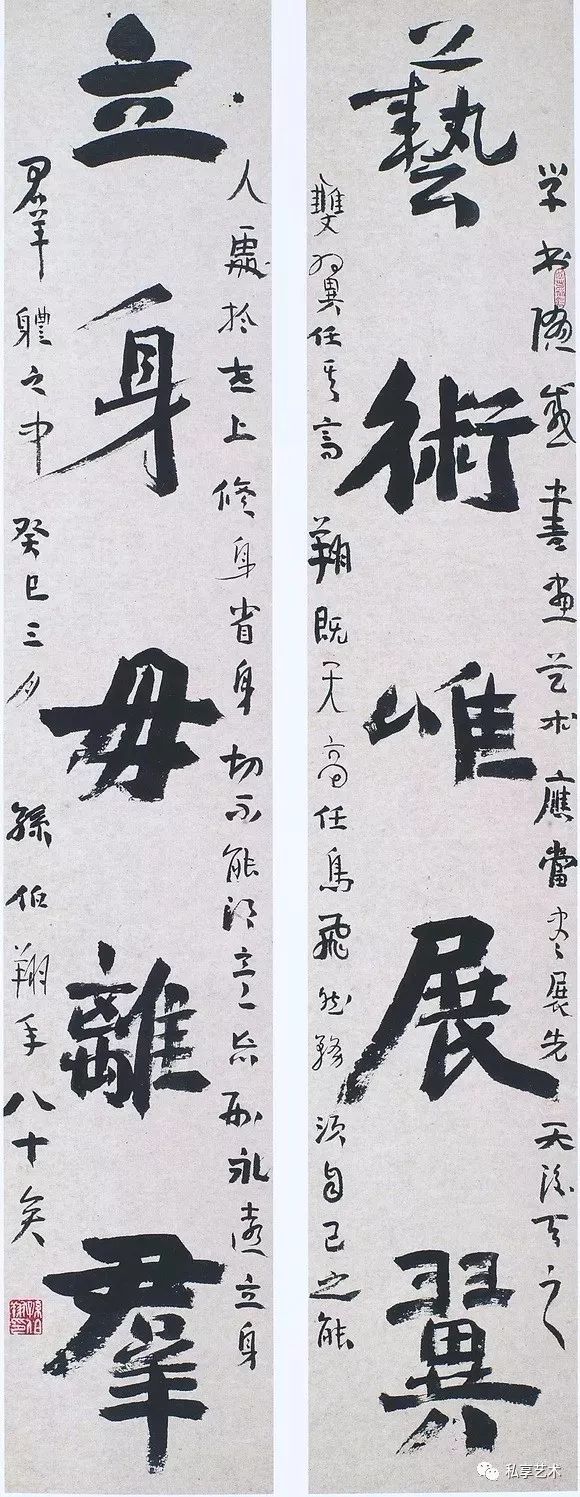 藝術唯展翼
学书感書画艺术應當尽展先天後天之
雙翼任其高翔既天高任鳥飛然務須自己之能
立身毋離羣
人處於世上修身省身切不能得意忘形永遠立身
羣體之中 癸巳三月 孫伯翔年八十矣
私享艺术